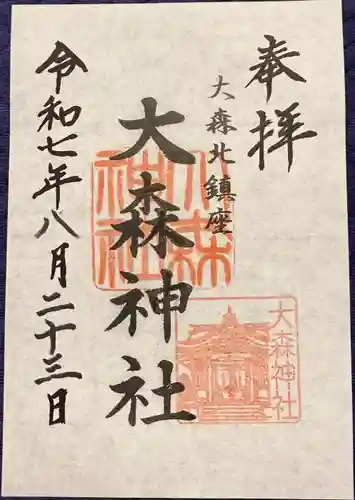 奉拝
大森北鎮座
大森神社
令和七年八月二十三日
大森神社
大森神社